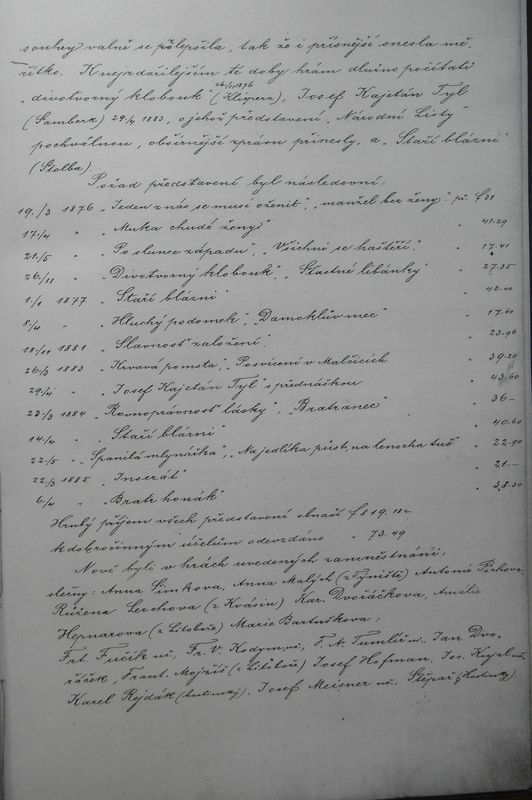 souhry valně se přilepšila, tak že i přísnější snesla mě-
řítko. K nejzdařilejším té doby hrám dlužno počítati
26/11 1876
„divotvorný klobouk" (Klicpera), Josef Kajetán Tyl
(Šamberk) 29/4 1883, o jehož představení „Národní Listy"
pochvalnou, obšírnější zprávu přinesly, a „Staří blázni"
(Štolba).
Pořad představení byl následovní:
19./3 1876 „Jeden z nás se musí oženit", „manžel bez ženy". př. f 31
17./4 " „Muka chudé ženy" " 41.29
21./5 " „Po slunce západu", „Všichni se haštěří." " 17.41
26./11 " „Divotvorný klobouk", „Šťastné líbánky" " 27.35
1./1 1877 „Staří blázni" "
8./4 " „Hluchý podomek", „Damoklův meč" " 17.60
18./11 1881 „Slavnost založení". " 23.96
26./3 1883 „Krvavá pomsta", „Posvícení v Malčicích " 39.20
29./4 " „Josef Kajetán Tyl" s přednáškou " 43.60
23./3 1884 „Rovnoprávnost lásky", „Bratranec" " 36–
14./4 " „Staří blázni" " 40.60
22./5 " „Spanilá mlynářka", „Na jedlíka půst, na lenocha " 22.90
22./3 1885 „Inserát" " 21.–
6./4 " „Bratr honák" " 38.30
Hrubý příjem všech představení obnáší f 819.
k dobročinným účelům odevzdáno " 73.49
Nově byli v hrách uvedených zaměstnáni:
slečny: Anna Šimkova, Anna Malých (z Týniště) Antonie
Růžena Lerchova (z Kvásin) Kar. Dvořáčkova, Amálie
Hepnarova (z Litoboře) Marie Bartuškova;
Frt. Fučík uč., Fr. V. Kodym uč., F. A. Tumlíř uč. Jan Dvo-
řáček, Frant. Mojžíš (z Litoboře) Josef Hofman, Jos. uč.,
Karel Rejdák Josef Meisner uč. Štěpař